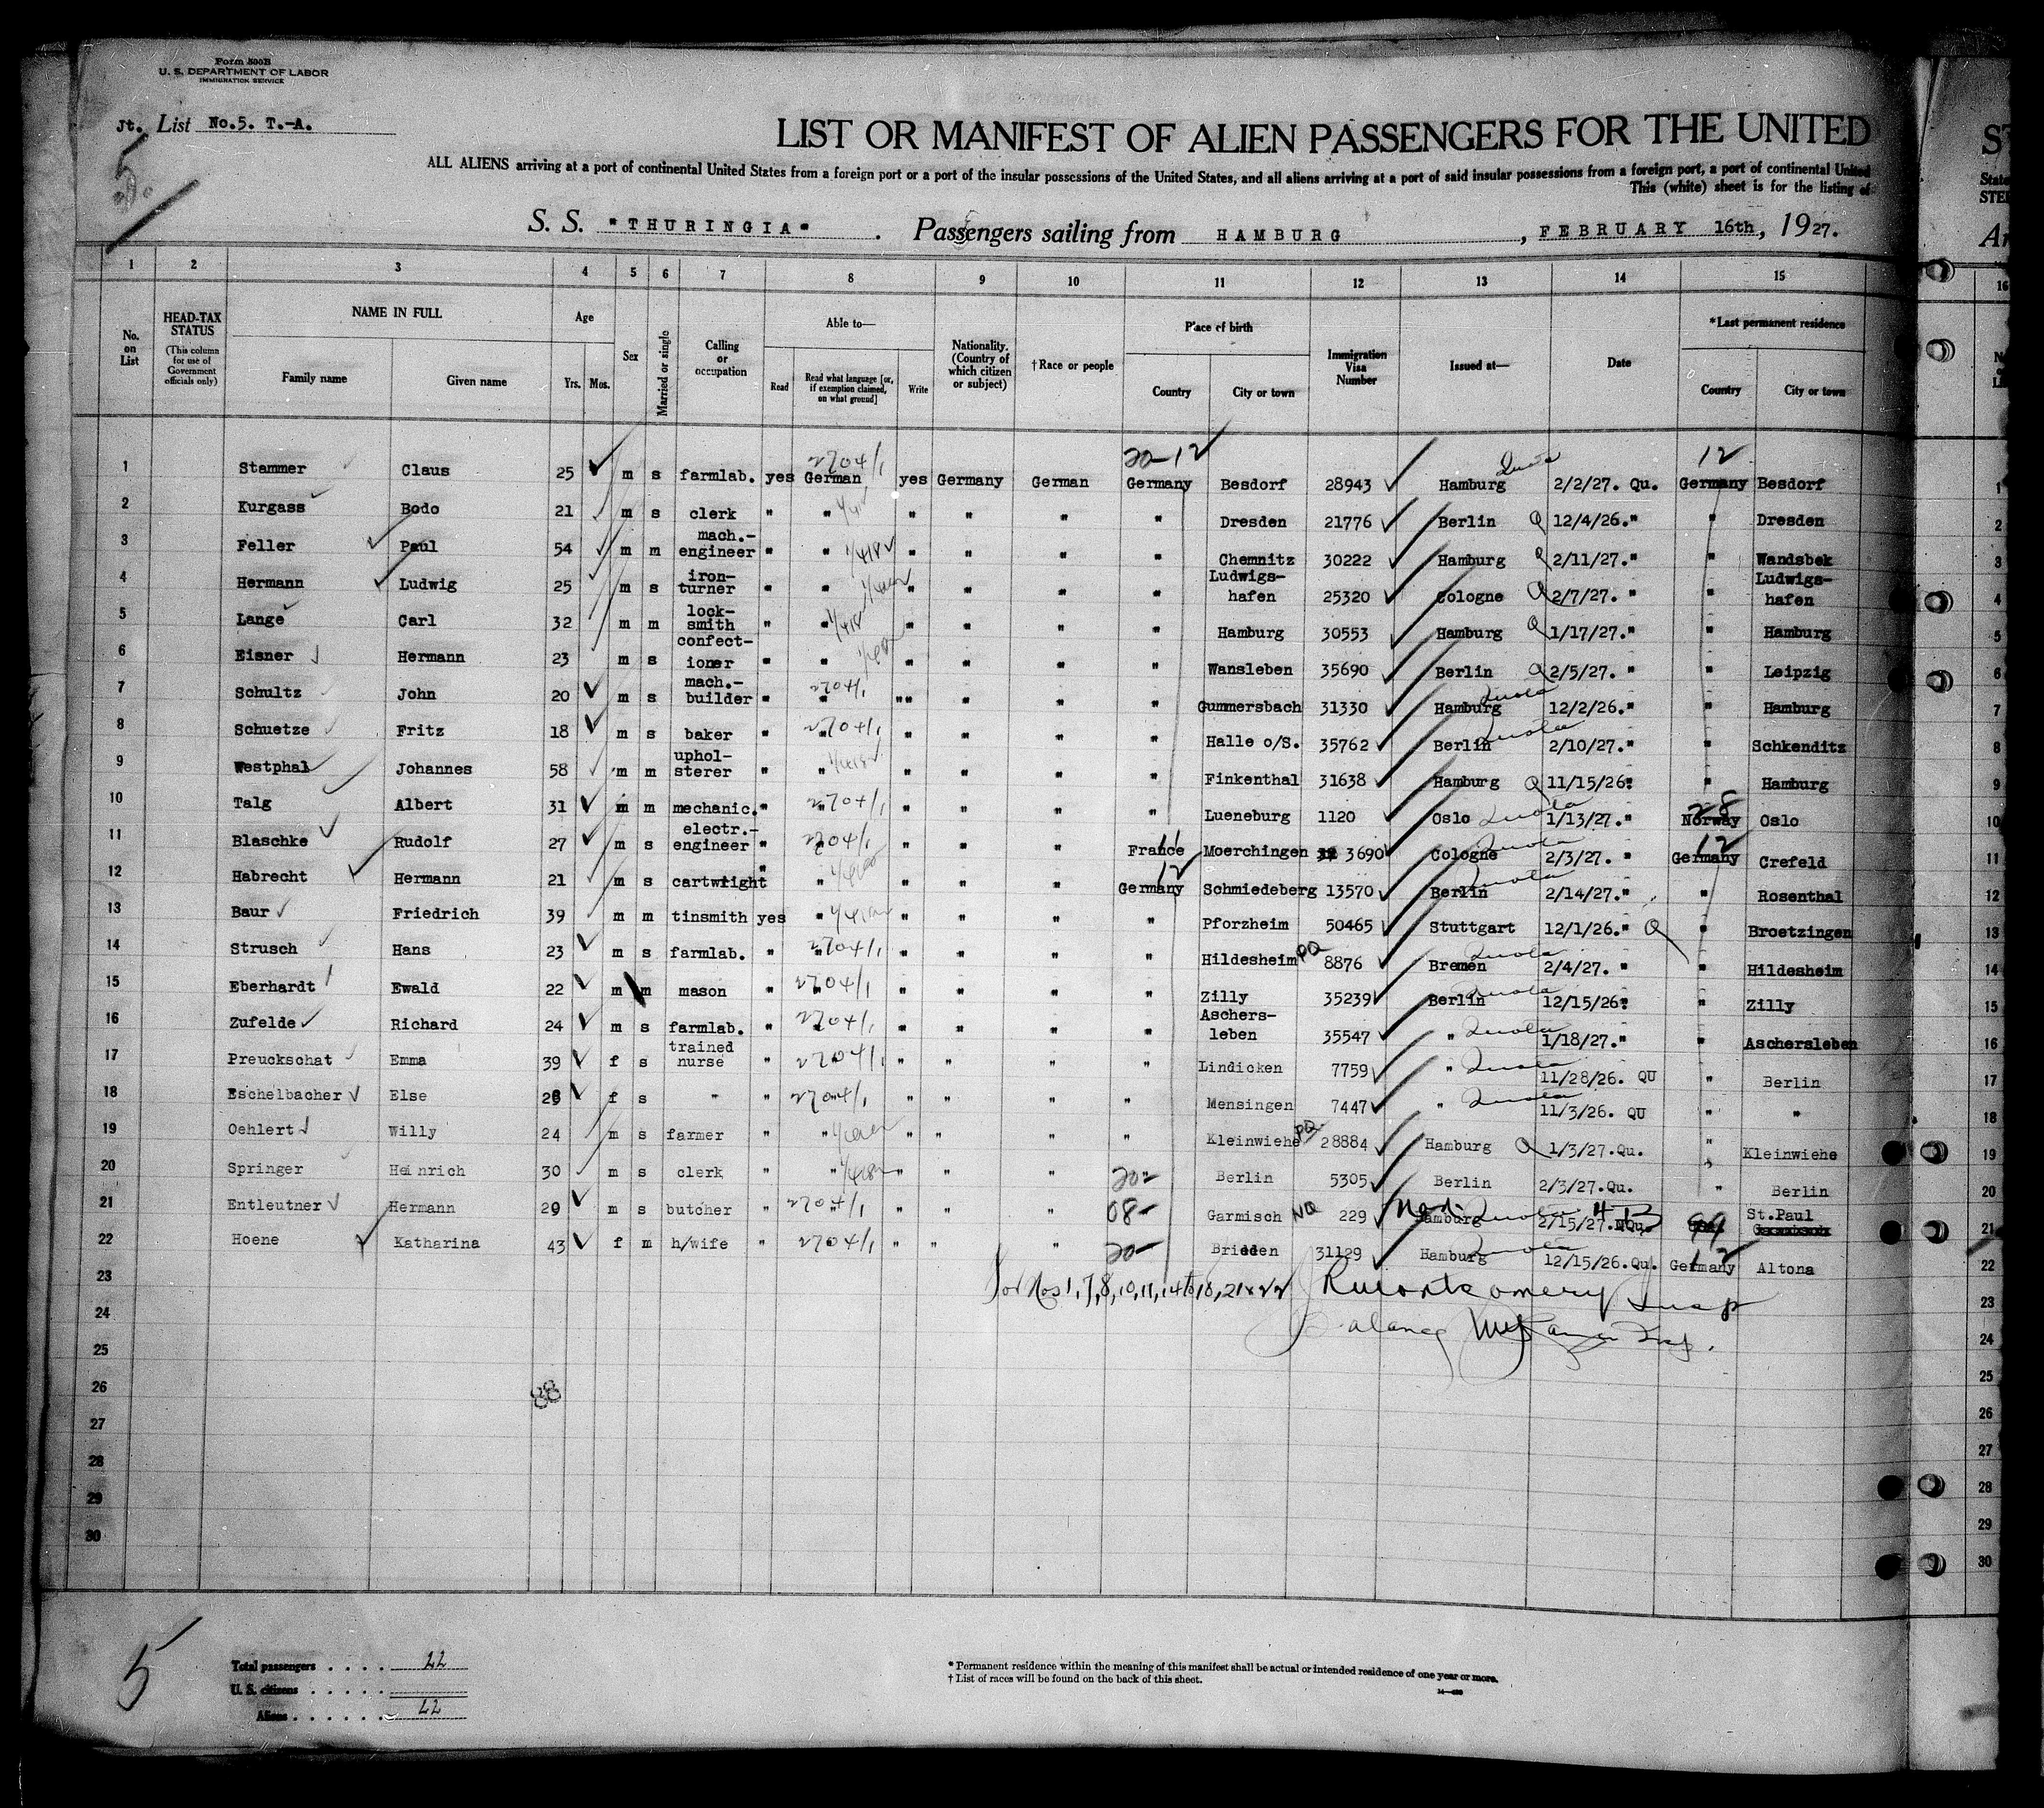 Form 500B
U. S. DEPARTMENT OF LABOR
IMMIGRATION SERVICE
Jt. List No.5. T.-A.
5
LIST OR MANIFEST OF ALIEN PASSENGERS FOR THE UNITED
ALL ALIENS arriving at a port of continental United States from a foreign port or a port of the insular possessions of the United States, and all aliens arriving at a port of said insular possessions from a foreign port, a port of continental United
This (white) sheet is for the listing of
S. S. "THURINGIA" . Passengers sailing from HAMBURG , FEBRUARY 16th, 1927.
1 2 3 4 5 6 7 8 9 10 11 12 13 14 15 16
No. on List
HEAD-TAX STATUS
(This column for use of Government officials only)
NAME IN FULL
Family name Given name
Age
Yrs. Mos.
Sex
Married or single
Calling or occupation
Able to—
Read
Read what language [or, if exemption claimed, on what ground]
Write
Nationality. (Country of which citizen or subject)
†Race or people
Place of birth
Country City or town
Immigration Visa Number
Issued at—
Date
*Last permanent residence
Country City or town
20-12 12
1 Stammer Claus 25 m s farmlab. yes German 2704/1 yes Germany German Germany Besdorf 28943 Hamburg Quota 2/2/27. Qu. Germany Besdorf 1
2 Kurgass Bodo 21 m s clerk " " " " " " Dresden 21776 Berlin Q 12/4/26." " Dresden 2
3 Feller Paul 54 m m mach.-engineer " " " " " " Chemnitz 30222 Hamburg Q 2/11/27." " Wandsbek 3
4 Hermann Ludwig 25 m s iron-turner " " " " " " Ludwigs-hafen 25320 Cologne Q 2/7/27. " " Ludwigs-hafen 4
5 Lange Carl 32 m m lock-smith " " " " " " Hamburg 30553 Hamburg Q 1/17/27." " Hamburg 5
6 Eisner Hermann 23 m s confect-ioner " " " " " " Wansleben 35690 Berlin Q 2/5/27. " " Leipzig 6
7 Schultz John 20 m s mach.-builder " " 2704/1 "" " " " Gummersbach 31330 Hamburg Quota 12/2/26." " Hamburg 7
8 Schuetze Fritz 18 m s baker " " 2704/1 " " " " Halle o/S. 35762 Berlin Quota 2/10/27." " Schkenditz 8
9 Westphal Johannes 58 m m uphol-sterer " " " " " " Finkenthal 31638 Hamburg Q 11/15/26" " Hamburg 9
10 Talg Albert 31 m m mechanic. " " 2704/1 " " " " Lueneburg 1120 Oslo Quota 1/13/27." 28 Norway Oslo 10
11 Blaschke Rudolf 27 m s electr.-engineer " " 2704/1 " " " France Moerchingen 3690 Cologne Quota 2/3/27. " 12 Germany Crefeld 11
12 Habrecht Hermann 21 m s cartwright " " " " " 12 Germany Schmiedeberg 13570 Berlin Quota 2/14/27." " Rosenthal 12
13 Baur Friedrich 39 m m tinsmith yes " " " " " Pforzheim 50465 Stuttgart 12/1/26." Q " Broetzingen 13
14 Strusch Hans 23 m s farmlab. " " 2704/1 " " " " Hildesheim PQ 8876 Bremen Quota 2/4/27. " " Hildesheim 14
15 Eberhardt Ewald 22 m m mason " " 2704/1 " " " " Zilly 35239 Berlin Quota 12/15/26" " Zilly 15
16 Zufelde Richard 24 m s farmlab. " " 2704/1 " " " " Aschers-leben 35547 " Quota 1/18/27." " Aschersleben 16
17 Preuckschat Emma 39 f s trained nurse " " 2704/1 " " " " Lindicken 7759 " Quota 11/28/26. QU " Berlin 17
18 Eschelbacher Else f s " " " 2704/1 " " " " Mensingen 7447 " Quota 11/3/26. QU " " 18
19 Oehlert Willy 24 m s farmer " " " " " " Kleinwiehe PQ 28884 Hamburg Q 1/3/27.Qu. " Kleinwiehe 19
20 Springer Heinrich 30 m s clerk " " " " " 20- Berlin 5305 Berlin 2/3/27.Qu. " Berlin 20
21 Entleutner Hermann 29 m s butcher " " 2704/1 " " " 08- Garmisch NQ 229 Non- Hamburg Quota 2/15/27.NQu. 4-B 99 St.Paul 21
22 Hoene Katharina 43 f m h/wife " 2704/1 " " " 20- Bridden 31129 Hamburg Quota 12/15/26.Qu. 12 Germany Altona 22
23 For Nos 1,7,8,10,11,14 to 18, 21 & 22 RMontgomery Insp 23
24 Balance Insp. 24
25 25
26 26
27 27
28 28
29 29
30 30
5
Total passengers . . . . 22
U. S. citizens . . . . .
Aliens . . . . . . 22
* Permanent residence within the meaning of this manifest shall be actual or intended residence of one year or more.
† List of races will be found on the back of this sheet.